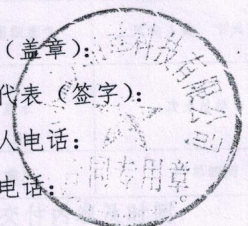 （盖章）：
代表（签字）：
人电话：
电话：
科技有限公司
合同专用章